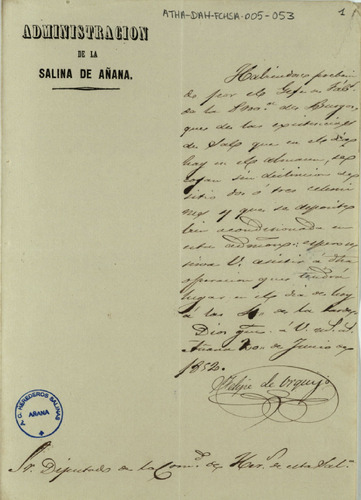 ATHA-DAH-FCHSA-005-053
1
ADMINISTRACION
DE LA
SALINA DE AÑANA.
Habiendose preveni
do por el Gefe de Fab.
de la Prov.ª de Burgos,
que de las existencias
de Sal que en el dia
hay en el almacen, se
cojan sin distincion de
sitio dos ó tres celemi
nes y que se deposite
bien acondicionada en
esta admon.; espero se
sirva V. asistir á dha
operacion que tendrá
lugar en el dia de hoy
á las 4 de la tarde.
Dios gue. á V. m. a.
Añana de Junio de
1852.
Felipe de Orquijo
A.C. HEREDEROS SALINAS
AÑANA
Sr. Diputado de la Comd. de Hes. de esta Sal.